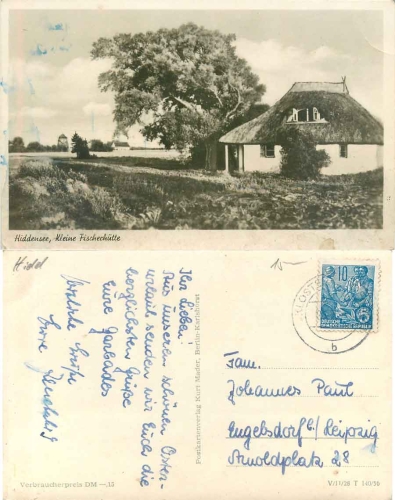 Hiddensee, Kleine Fischerhütte
Hidd.
15.—
Ihr Lieben!
Aus unserem schönen Oster-
urlaub senden wir Euch die
herzlichsten Grüße
Eure
Herzliche Grüße
Eure
Postkartenverlag Kurt Mader, Berlin-Karlshorst
KLOSTE
b
10
DEUTSCHE
DEMOKRATISCHE REPUBLIK
Fam.
Johannes Paul
Engelsdorf b/Leipzig
Arnoldplatz 28
Verbraucherpreis DM —,12
V/15/28 T 140/56